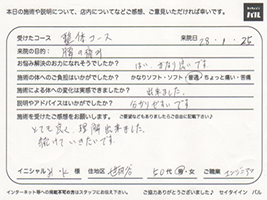 本日の施術や説明について、店内についてなどご感想、ご意見いただければ幸いです。
受けたコース 整体コース 来院日 28.1.25
来院の目的: 腰の痛み
お悩み解決のお力になれそうでしたか? はい、かなり良いです。
施術の体へのご負担はいかがでしたか? かなりソフト・ソフト・普通・ちょっと痛い・苦痛
施術による体への変化は実感できましたか? 出来ました。
説明やアドバイスはいかがでしたか? 分かりやすいです
施術を受けたご感想をお願いします。
とても良く理解出来ました。
続けていきたいです。
イニシャル K・K 様 住地区 世田谷 50代 男・女 ご職業 エンジニア
インターネット等への掲載不可の方はスタッフにお伝え下さい。 ご協力ありがとうございました! セイタイイン パル